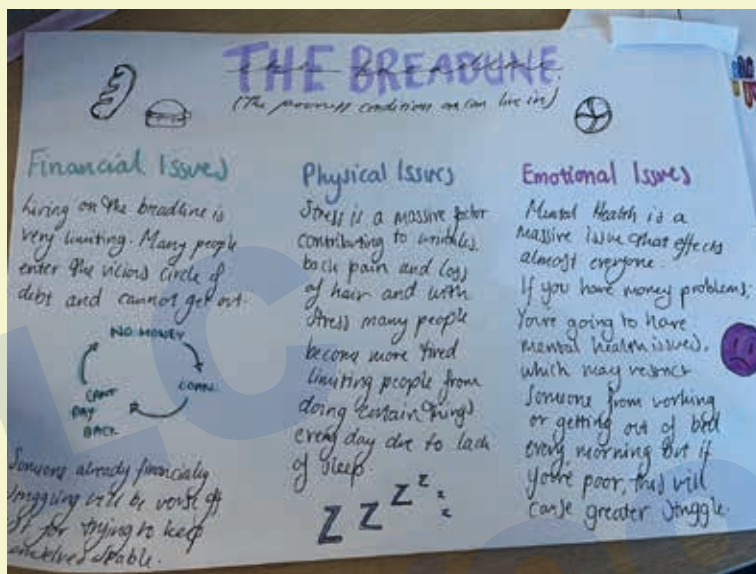 THE BREADLINE
(The poorness conditions on can live in)
Financial Issues
Living on the breadline is
very limiting. Many people
enter the vicious circle of
debt and cannot get out.
NO MONEY
LOAN
CANT
PAY
BACK
Someone already financially
struggling will be worse off
for trying to keep
Physical Issues
Stress is a massive factor
contributing to wrinkles,
back pain and loss
of hair and with
stress many people
become more tired
limiting people from
doing certain things
every day due to lack
of sleep
Z Z Z z z z
Emotional Issues
Mental Health is a
massive issue that effects
almost everyone.
If you have money problems,
You're going to have
mental health issues,
which may restrict
someone from working
or getting out of bed
every morning but if
you're poor, this will
cause greater struggle.
LC